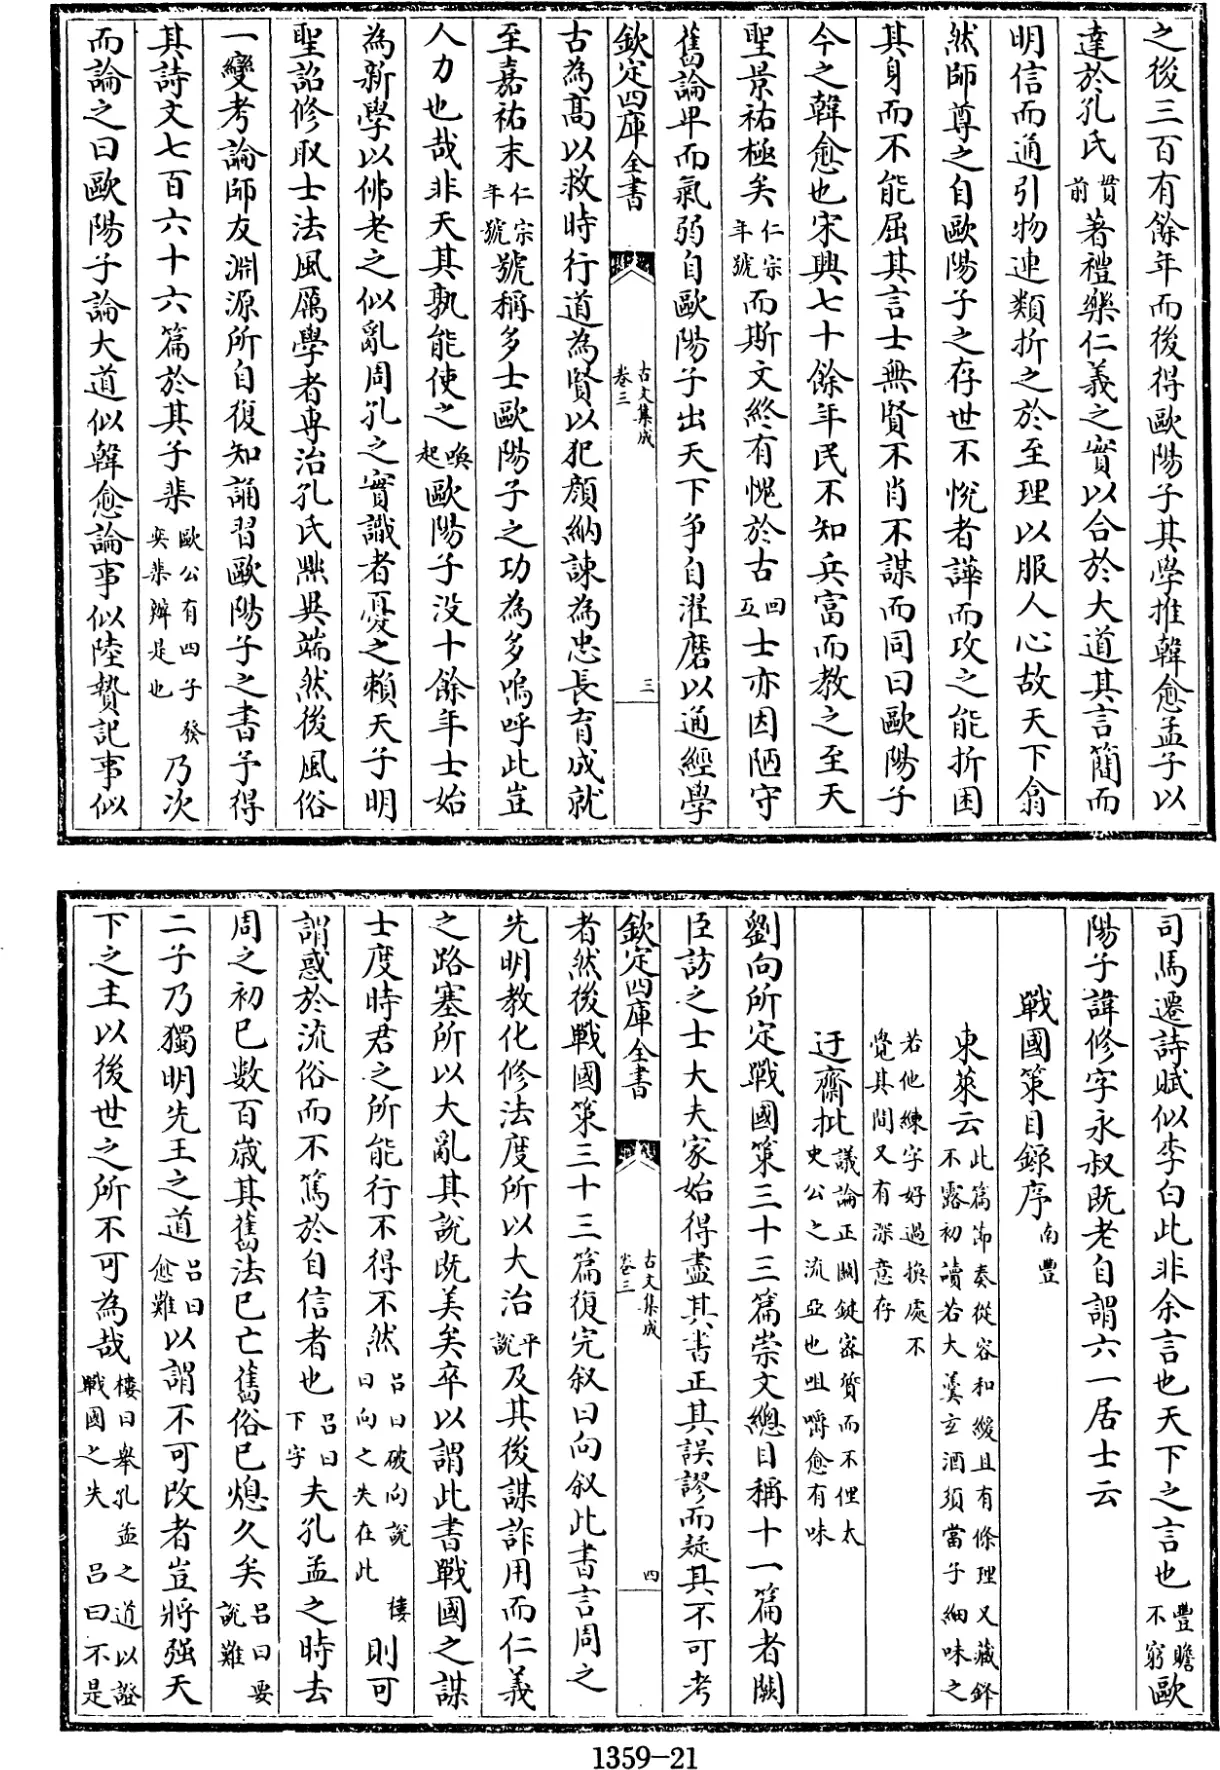 之後三百有餘年而後得歐陽子其學推韓愈孟子以
達於孔氏貫前著禮樂仁義之實以合於大道其言簡而
明信而通引物連類折之於至理以服人心故天下翕
然師尊之自歐陽子之存世不悅者譁而攻之能折困
其身而不能屈其言士無賢不肖不謀而同曰歐陽子
今之韓愈也宋興七十餘年民不知兵富而教之至天
聖景祐極矣仁宗年號而斯文終有愧於古回互士亦因陋守
舊論卑而氣弱自歐陽子出天下爭自濯磨以通經學
欽定四庫全書 古文集成卷三 三
古為高以救時行道為賢以犯顏納諫為忠長育成就
至嘉祐末仁宗年號號稱多士歐陽子之功為多嗚呼此豈
人力也哉非天其孰能使之喚起歐陽子没十餘年士始
為新學以佛老之似亂周孔之實識者憂之賴天子明
聖詔修取士法風厲學者專治孔氏黜異端然後風俗
一變考論師友淵源所自復知誦習歐陽子之書予得
其詩文七百六十六篇於其子棐歐公有四子發奕棐辯是也乃次
而論之曰歐陽子論大道似韓愈論事似陸贄記事似
司馬遷詩賦似李白此非余言也天下之言也豐贍不窮歐
陽子諱修字永叔既老自謂六一居士云
戰國策目錄序 南豐
東萊云此篇節奏從容和緩且有條理又藏鋒不露初讀若大羹玄酒須當子細味之
若他練字好過換處不覺其間又有深意存
迂齋批議論正關鍵密質而不俚太史公之流亞也咀嚼愈有味
劉向所定戰國策三十三篇崇文總目稱十一篇者闕
臣訪之士大夫家始得盡其書正其誤謬而疑其不可考
欽定四庫全書 古文集成卷三 四
者然後戰國策三十三篇復完叙曰向叙此書言周之
先明教化修法度所以大治平說及其後謀詐用而仁義
之路塞所以大亂其說既美矣卒以謂此書戰國之謀
士度時君之所能行不得不然呂曰破向說樓曰向之失在此則可
謂惑於流俗而不篤於自信者也呂曰下字夫孔孟之時去
周之初已數百歲其舊法已亡舊俗已熄久矣呂曰要說難
二子乃獨明先王之道呂曰愈難以謂不可改者豈將强天
下之主以後世之所不可為哉樓曰舉孔孟之道以證戰國之失呂曰不是
1359-21